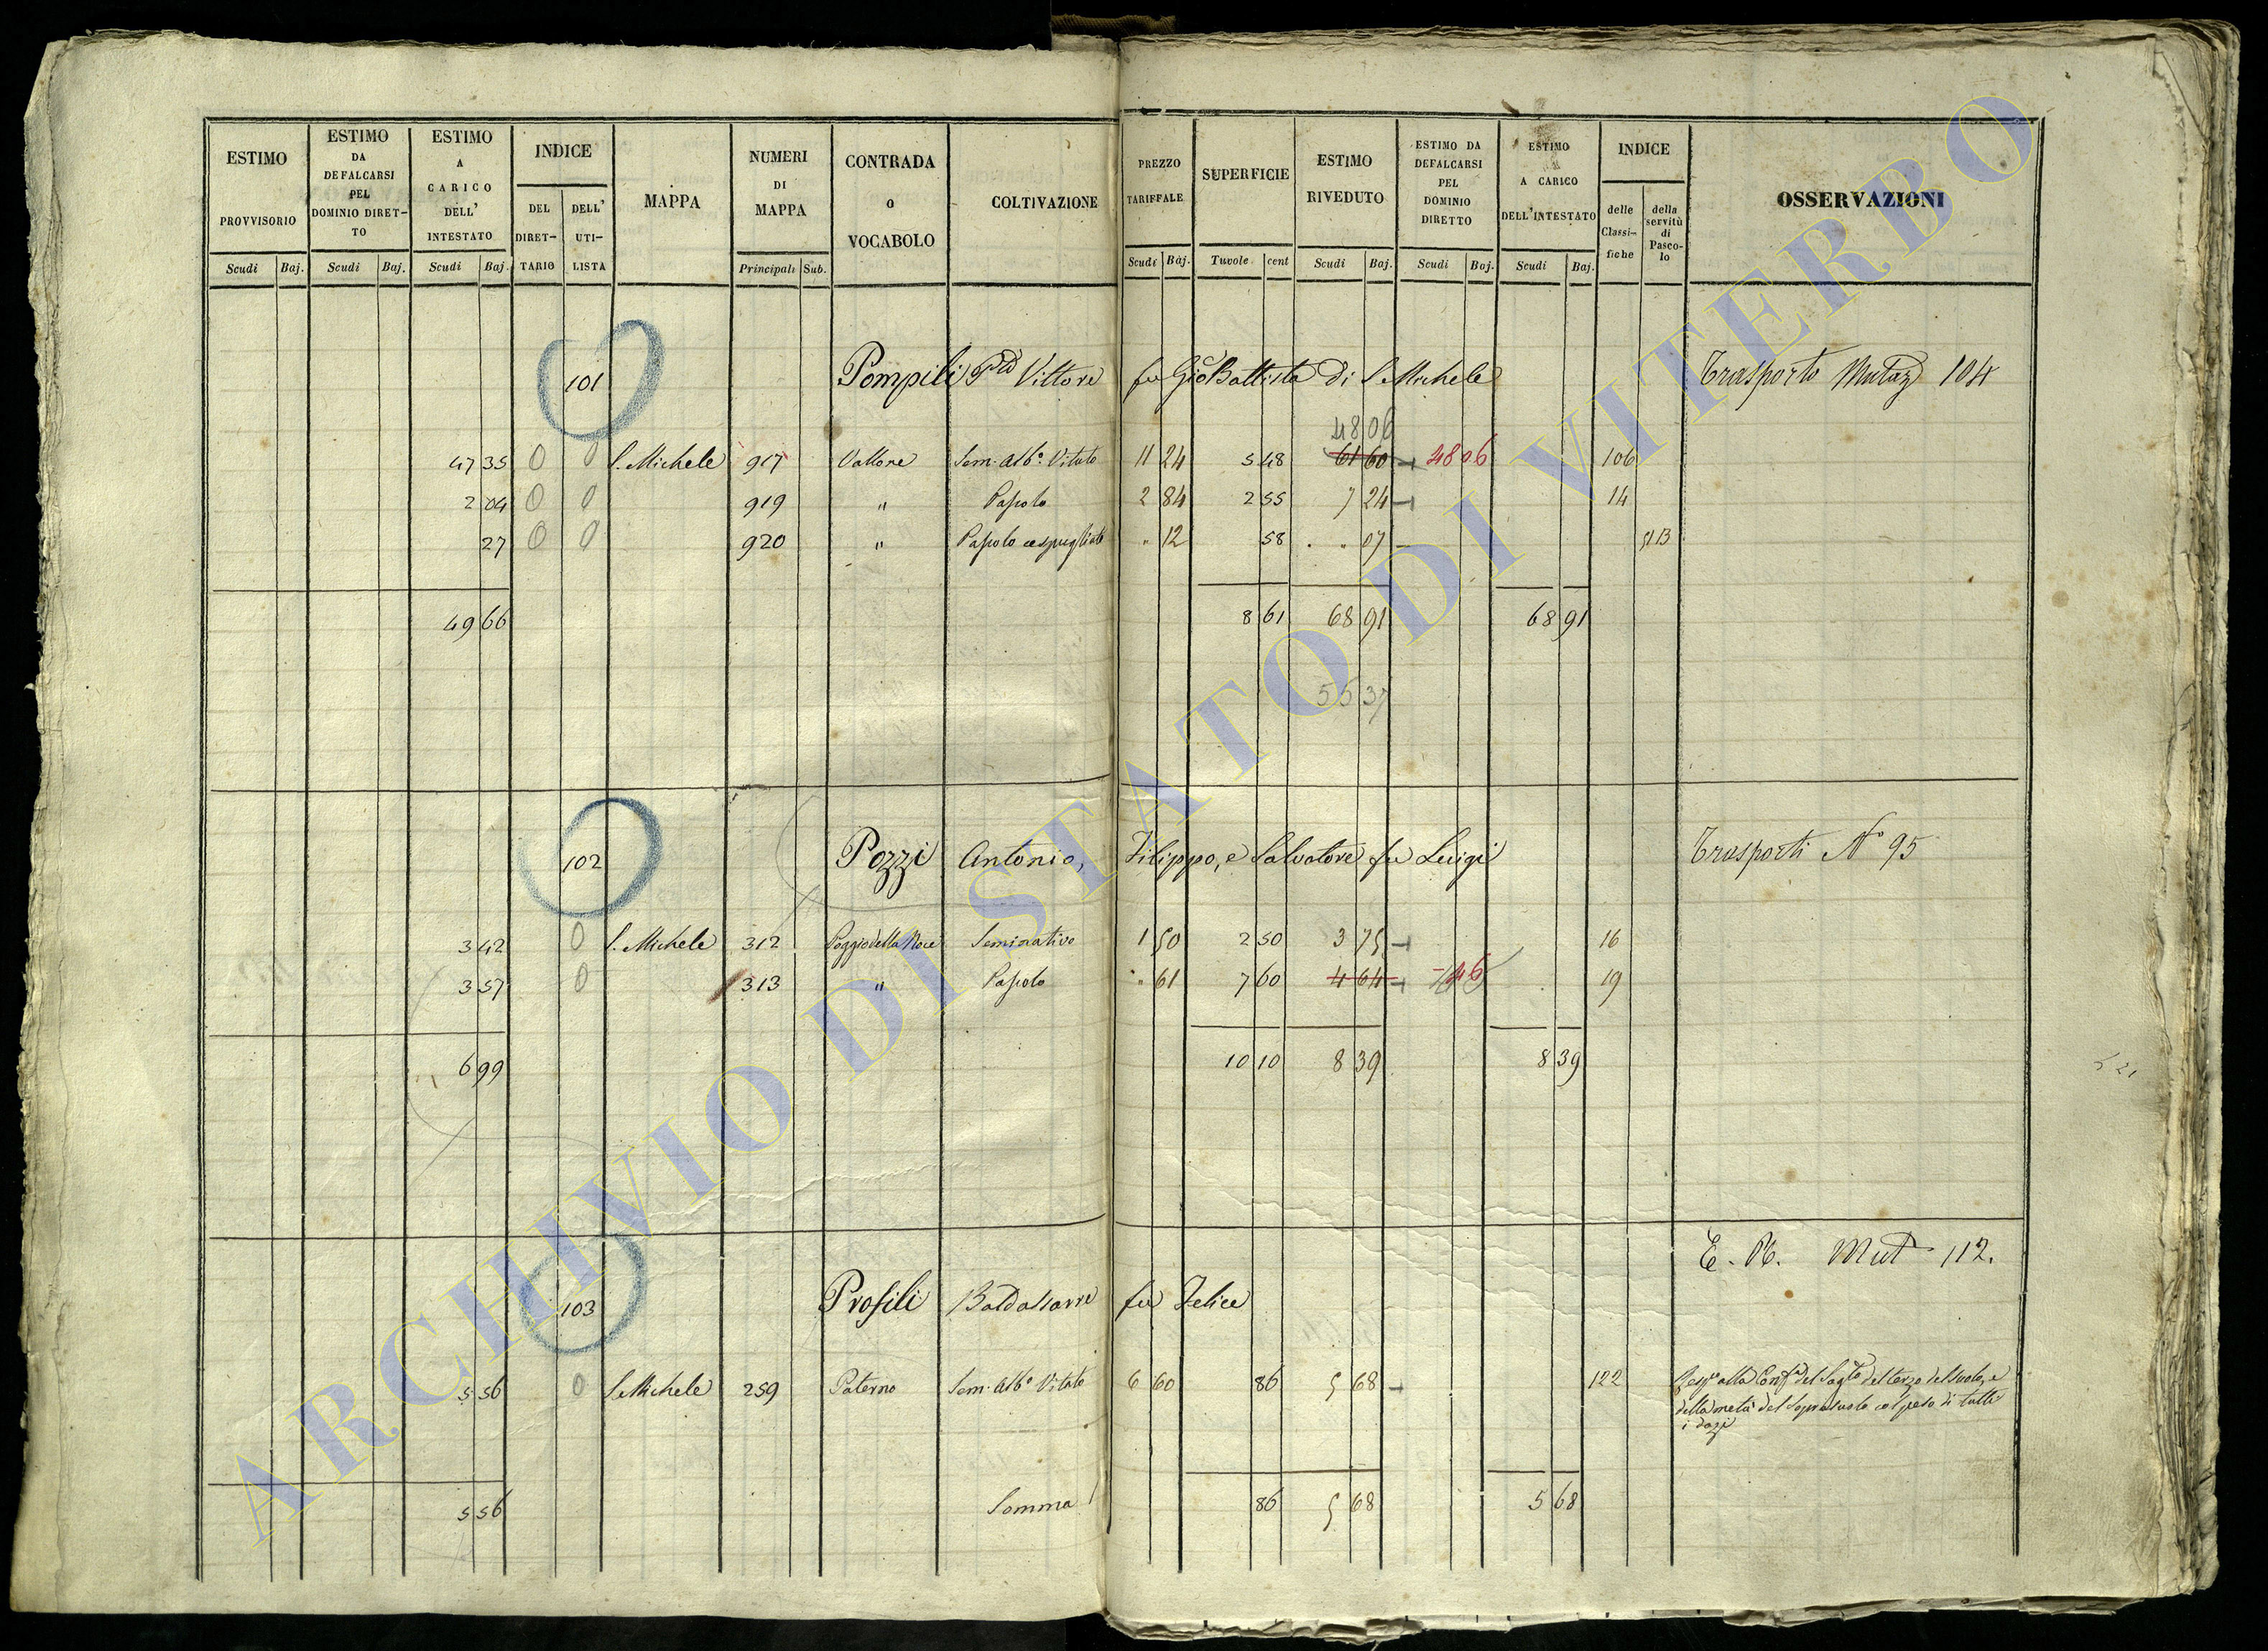 ESTIMO PROVVISORIO Scudi Baj.
ESTIMO DA DEFALCARSI PEL DOMINIO DIRET- TO Scudi Baj.
ESTIMO A CARICO DELL' INTESTATO Scudi Baj.
INDICE DEL DIRET- TARIO DELL' UTI- LISTA
MAPPA
NUMERI DI MAPPA Principali Sub.
CONTRADA O VOCABOLO
COLTIVAZIONE
PREZZO TARIFFALE Scudi Baj.
SUPERFICIE Tavole cent
ESTIMO RIVEDUTO Scudi Baj.
ESTIMO DA DEFALCARSI PEL DOMINIO DIRETTO Scudi Baj.
ESTIMO A CARICO DELL'INTESTATO Scudi Baj.
INDICE delle Classi- fiche della servitù di Pasco- lo
OSSERVAZIONI
101 Pompili Vittore fu Gio Battista di S. Michele Trasporto Mutaz 104
48 06
47 35 0 0 S. Michele 917 Vallone Sem. Alb.o Vitato 11 24 5 48 61 60 48 06 106
2 04 0 0 919 " Pascolo 2 84 2 55 7 24 14
27 0 0 920 " Pascolo cespugliato " 12 58 " " 07 51 B
49 66 8 61 68 91 68 91
55 37
102 Pozzi Antonio, Filippo, e Salvatore fu Luigi Trasporti N° 95
3 42 0 S. Michele 312 Poggio della Noce Seminativo 1 50 2 50 3 75 16
3 57 0 313 " Pascolo " 61 7 60 4 64 19
6 99 10 10 8 39 8 39
E. R. Mut 112.
103 Profili Baldassarre fu Felice
5 56 0 S. Michele 259 Paterno Sem. Alb.o Vitato 6 60 86 5 68 122 alla del del terzo del suolo, e
della metà del soprasuolo col peso di tutti
i dazj
5 56 Somma 86 5 68 5 68
ARCHIVIO DI STATO DI VITERBO